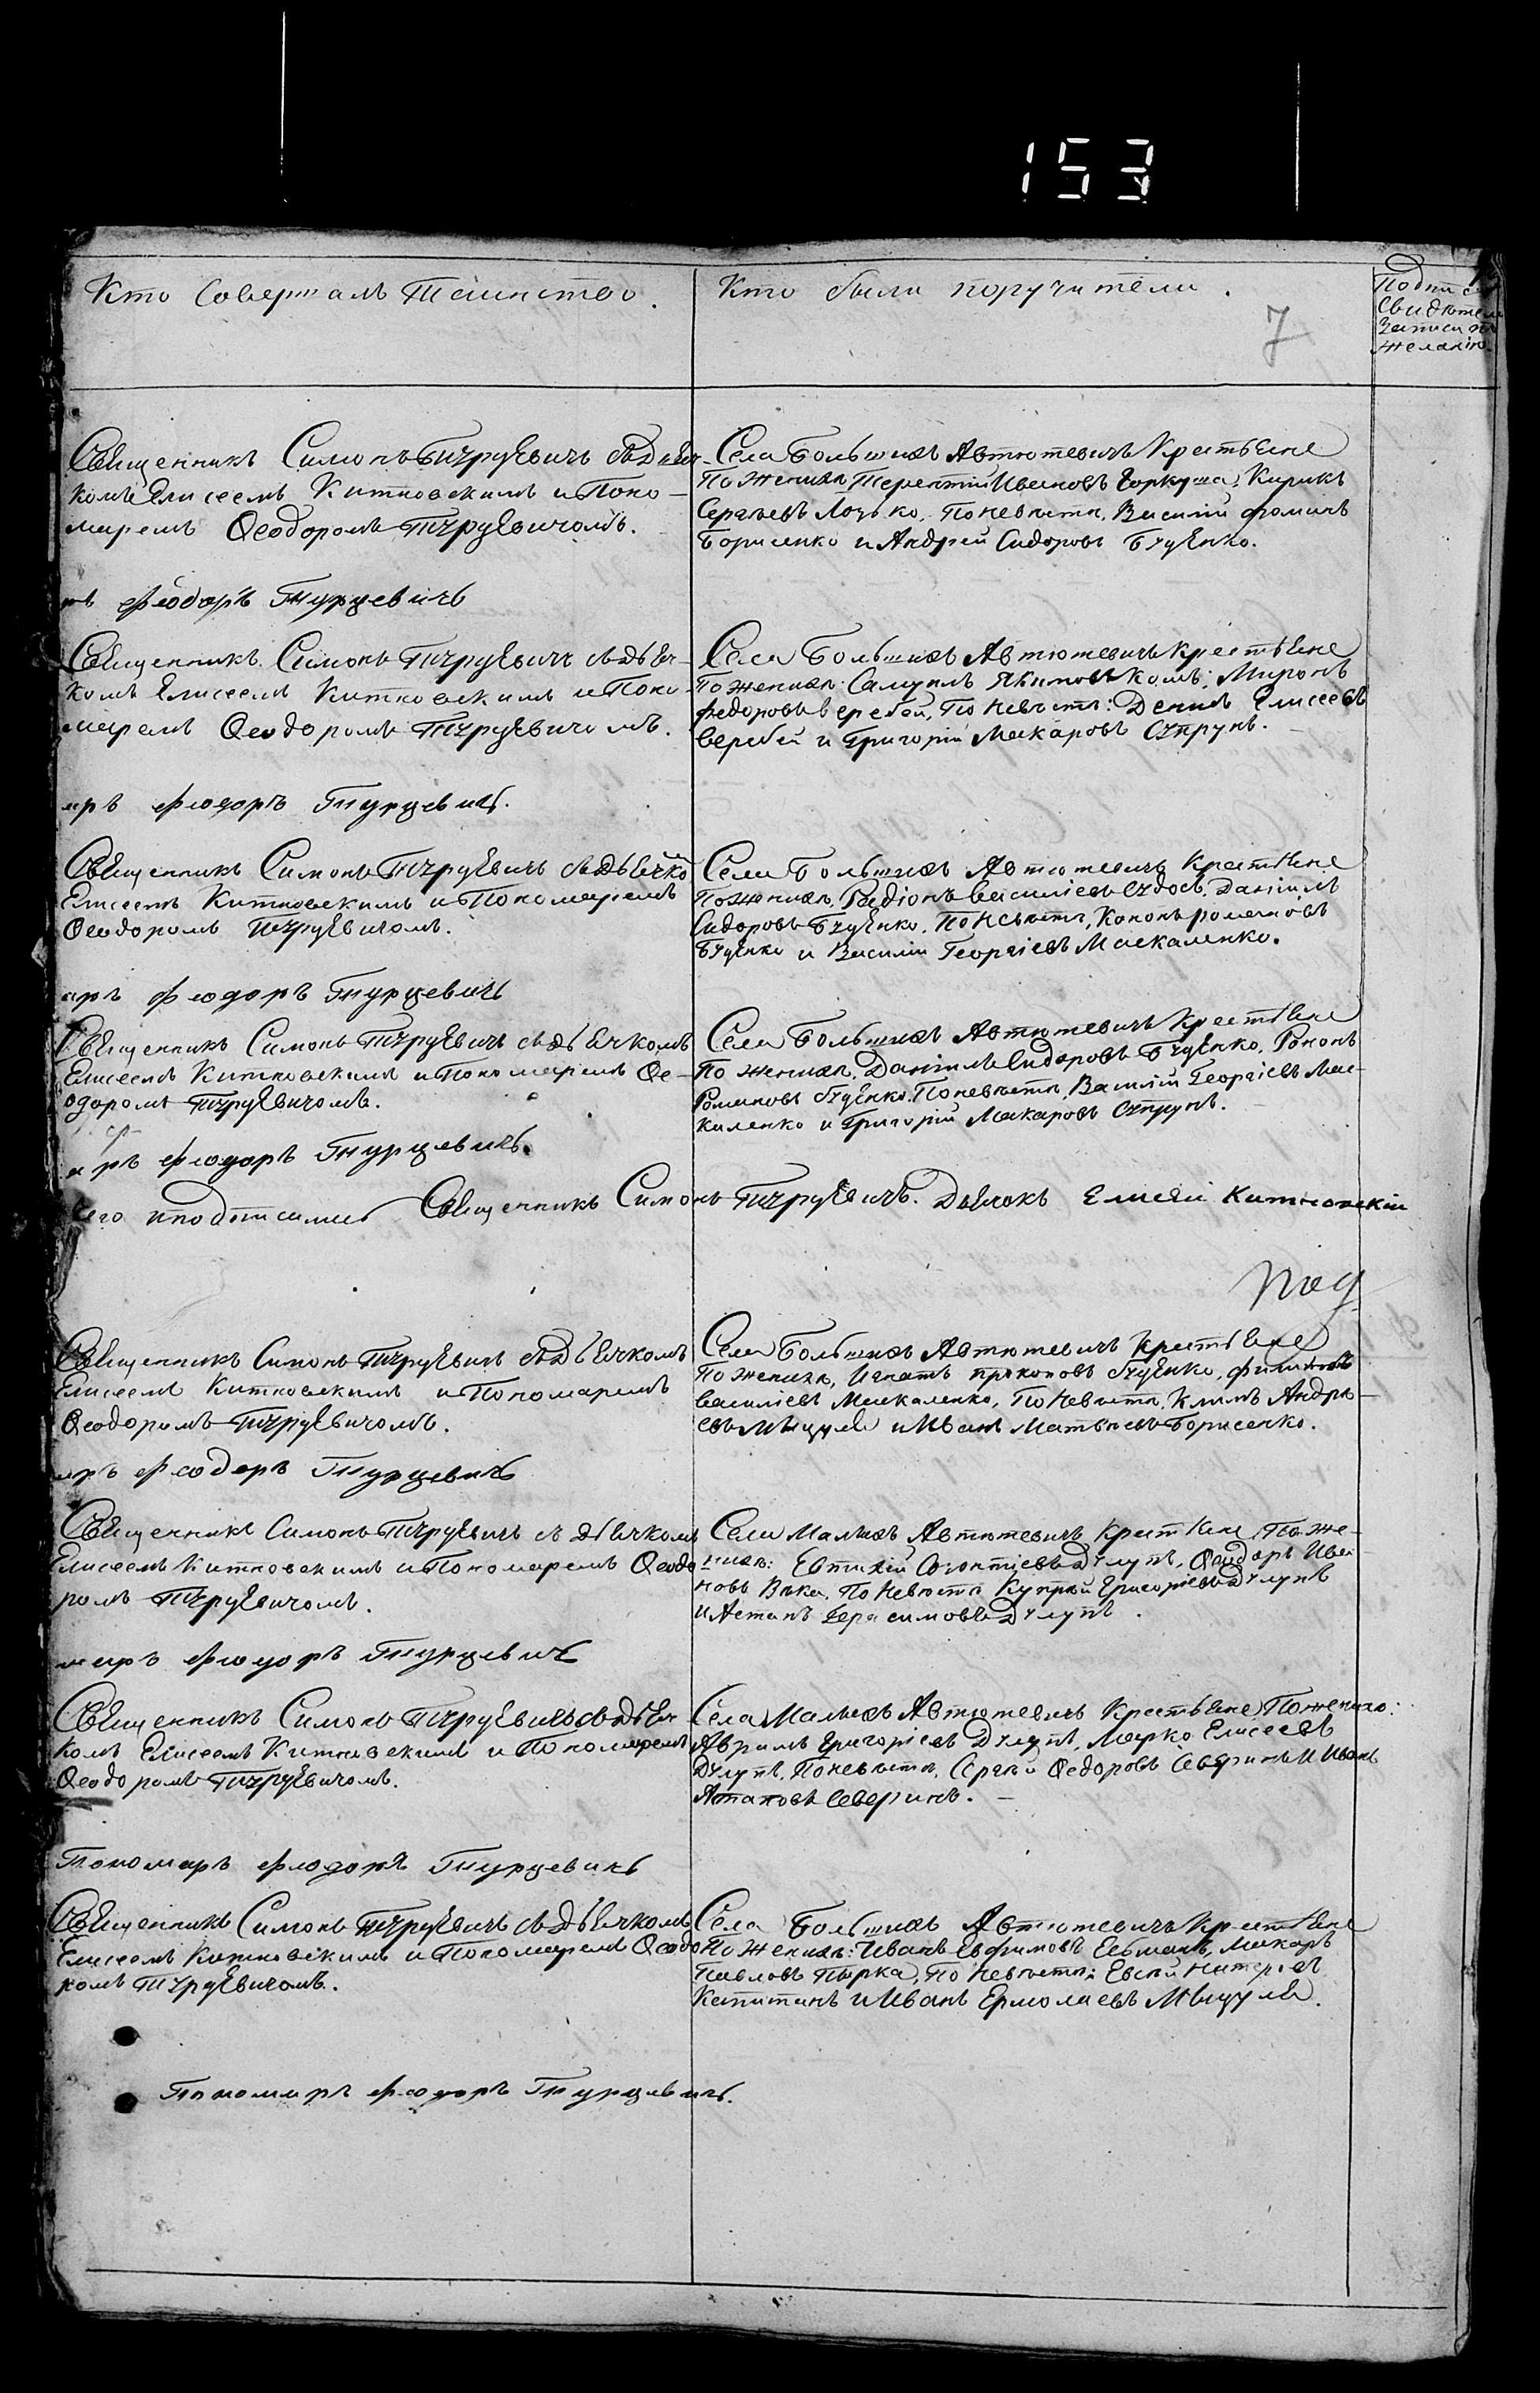 153
Кто Совершалъ Таинство.
Кто были поручители.
7
Подпись
Свидѣтелей
Записи по
желанію.
Священникъ Симонъ Турцевичъ съ дьяч-
комъ Елисеемъ Китновскимъ и Поно-
маремъ Ѳеодоромъ Турцевичомъ.
Села Большихъ Автютевичъ Крестьяне
По женихѣ, Терентій Ивановъ Горкуша, Кирикъ
Сергѣевъ Лозько, По невѣстѣ, Василій фоминъ
Борисенко и Андрей Сидоровъ Буценко.
ръ Фіодоръ Турцевичъ
Священникъ Симонъ Турцевичъ съ дьяч-
комъ Елисеемъ Китновскимъ и Поно-
маремъ Ѳеодоромъ Турцевичомъ.
Села Большихъ Автютевичъ крестьяне
По женихѣ: Самуилъ Якимовъ Комъ, Миронъ
федоровъ веребей, По Невѣстѣ: Денисъ Елисеевъ
веребей и Григорій Макаровъ Супрунъ.
аръ Фіодоръ Турцевичъ.
Священникъ Симонъ Турцевичъ съ дьячко
Елисеемъ Китновскимъ и Пономаремъ
Ѳеодоромъ Турцевичомъ.
Села Большихъ Автютевичъ Крестьяне
По женихѣ, Радіонъ василіевъ Даніилъ
Сидоровъ Буценко, По Невѣстѣ, Кононъ романовъ
Буценко и Василій Георгіевъ Маскаленко.
аръ Фіодоръ Турцевичъ
Священникъ Симонъ Турцевичъ съ дьячкомъ
Елисеемъ Китновскимъ и Пономаремъ Ѳе-
одоромъ Турцевичомъ.
Села Большихъ Автютевичъ Крестьяне
По женихѣ, Даніилъ Сидоровъ Буценко, Кононъ
Романовъ Буценко, По невѣстѣ, Василій Георгіевъ Мас-
каленко и Григорій Макаровъ Супрунъ.
аръ Фіодоръ Турцевичъ.
сего подписались Священникъ Симонъ Турцевичъ. Дьячокъ Елисей Китновскій
Священникъ Симонъ Турцевичъ съ дьячкомъ
Елисеемъ Китновскимъ и Пономаремъ
Ѳеодоромъ Турцевичомъ.
Села Большихъ Автютевичъ крестьяне
По женихѣ, Игнатъ прокоповъ Буценко, филиппъ
василіевъ Маскаленко, По Невѣстѣ, Климъ Андрѣ-
евъ Мицура и Иванъ Матвѣевъ Борисенко.
аръ Фіодоръ Турцевичъ
Священникъ Симонъ Турцевичъ съ дьячкомъ
Елисеемъ Китновскимъ и Пономаремъ Ѳеодо
ромъ Турцевичомъ.
Села Малыхъ Автютевичъ крестьяне, По же-
нихѣ: Евтихій Созонтіевъ Дулупъ, Ѳеодоръ Ива
новъ Вака, По Невѣстѣ Купрей Григоріевъ Дулупъ
и Астапъ Герасимовъ Дулупъ.
маръ Фіодоръ Турцевичъ
Священникъ Симонъ Турцевичъ съ дьяч-
комъ Елисеемъ Китновскимъ и Пономаремъ
Ѳеодоромъ Турцевичомъ.
Села Малыхъ Автютевичъ Крестьяне, По жениху:
Аврамъ Григоріевъ Дулупъ, Марко Елисеевъ
Дулупъ, По невѣстѣ, Сергей Ѳедоровъ Северинъ и Иванъ
Астаповъ Северинъ.
Пономаръ Фіодоръ Турцевичъ
Священникъ Симонъ Турцевичъ съ дьячкомъ
Елисеемъ Китновскимъ и Пономаремъ Ѳеодо
ромъ Турцевичомъ.
Села Большихъ Автютевичъ Крестьяне
По женихѣ: Иванъ Евфимовъ Макаръ
Павловъ Пырка, По невѣстѣ: Евсей
Капитанъ и Иванъ Ермолаевъ Мицура.
Пономаръ Фіодоръ Турцевичъ.